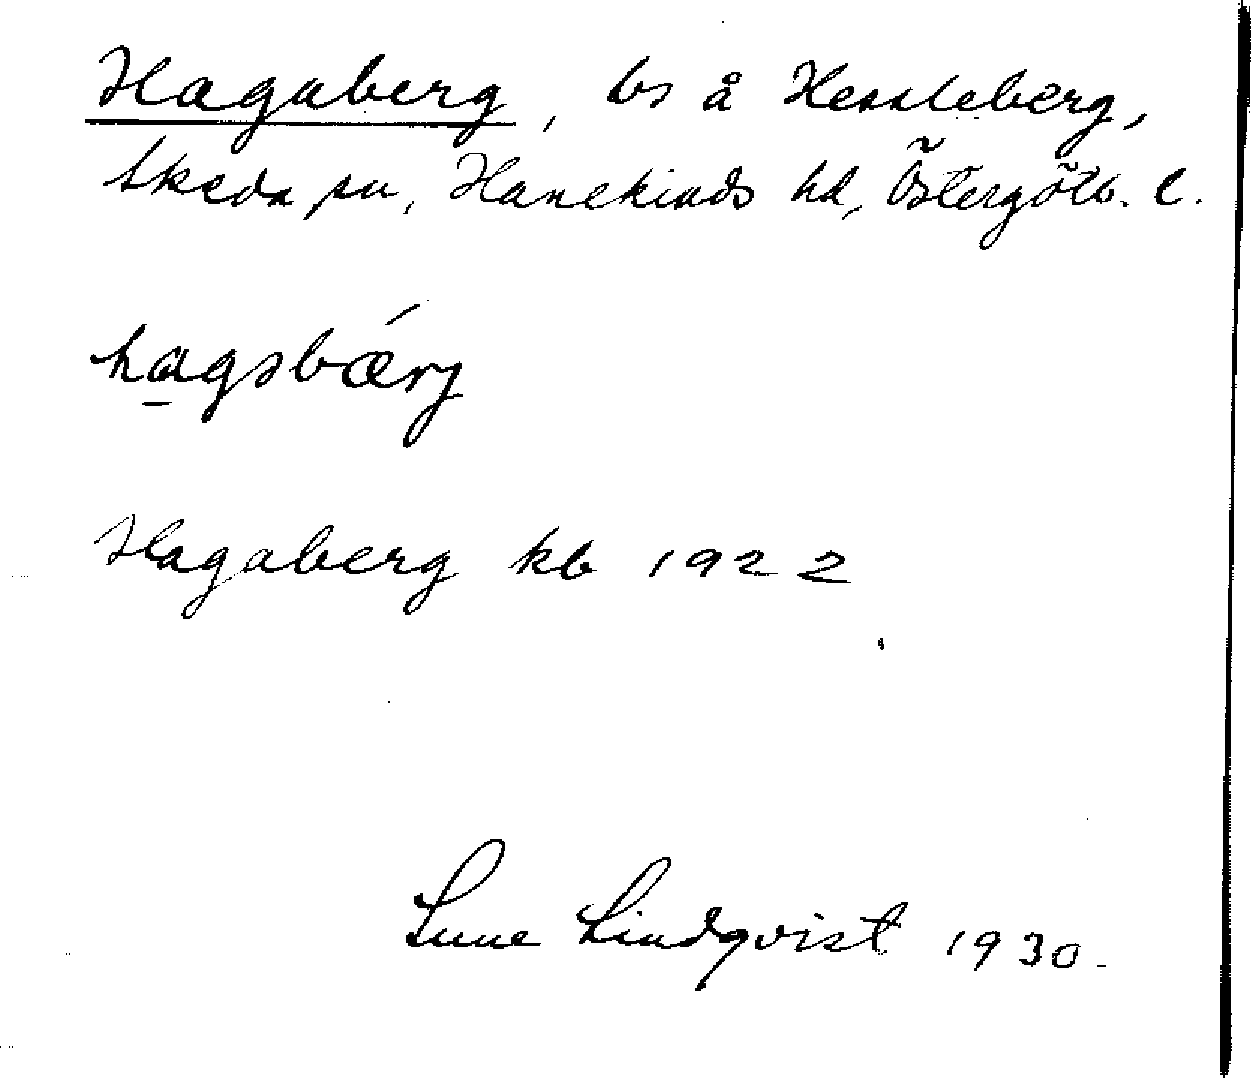 Hagaberg, bs å Hessleberg,
Skeda sn, Hanekinds hd, Östergötl. l.
hagsbærj
Hagaberg kb 1922
Sune Lindqvist 1930.